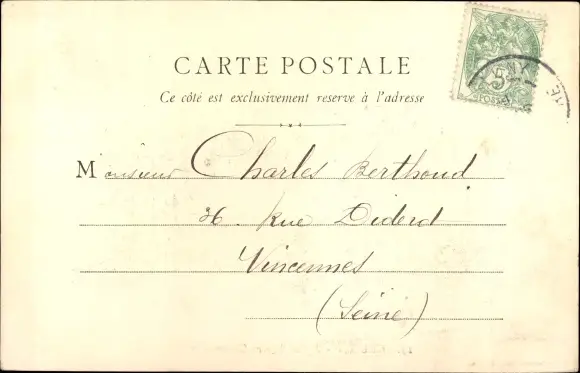 CARTE POSTALE
Ce côté est exclusivement reserve à l'adresse
Monsieur Charles Berthoud
26. Rue Diderot
Vincennes
(Seine)
5c
POSTES